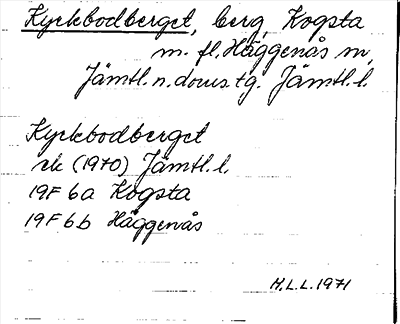 Kyrkbodberget, berg, Kogsta
m. fl. Häggenås sn,
Jämtl. n. doms. tg. Jämtl. l.
Kyrkbodberget
rk (1970) Jämtl. l.
19F 6a Kogsta
19F 6b Häggenås
H.L.L. 1971